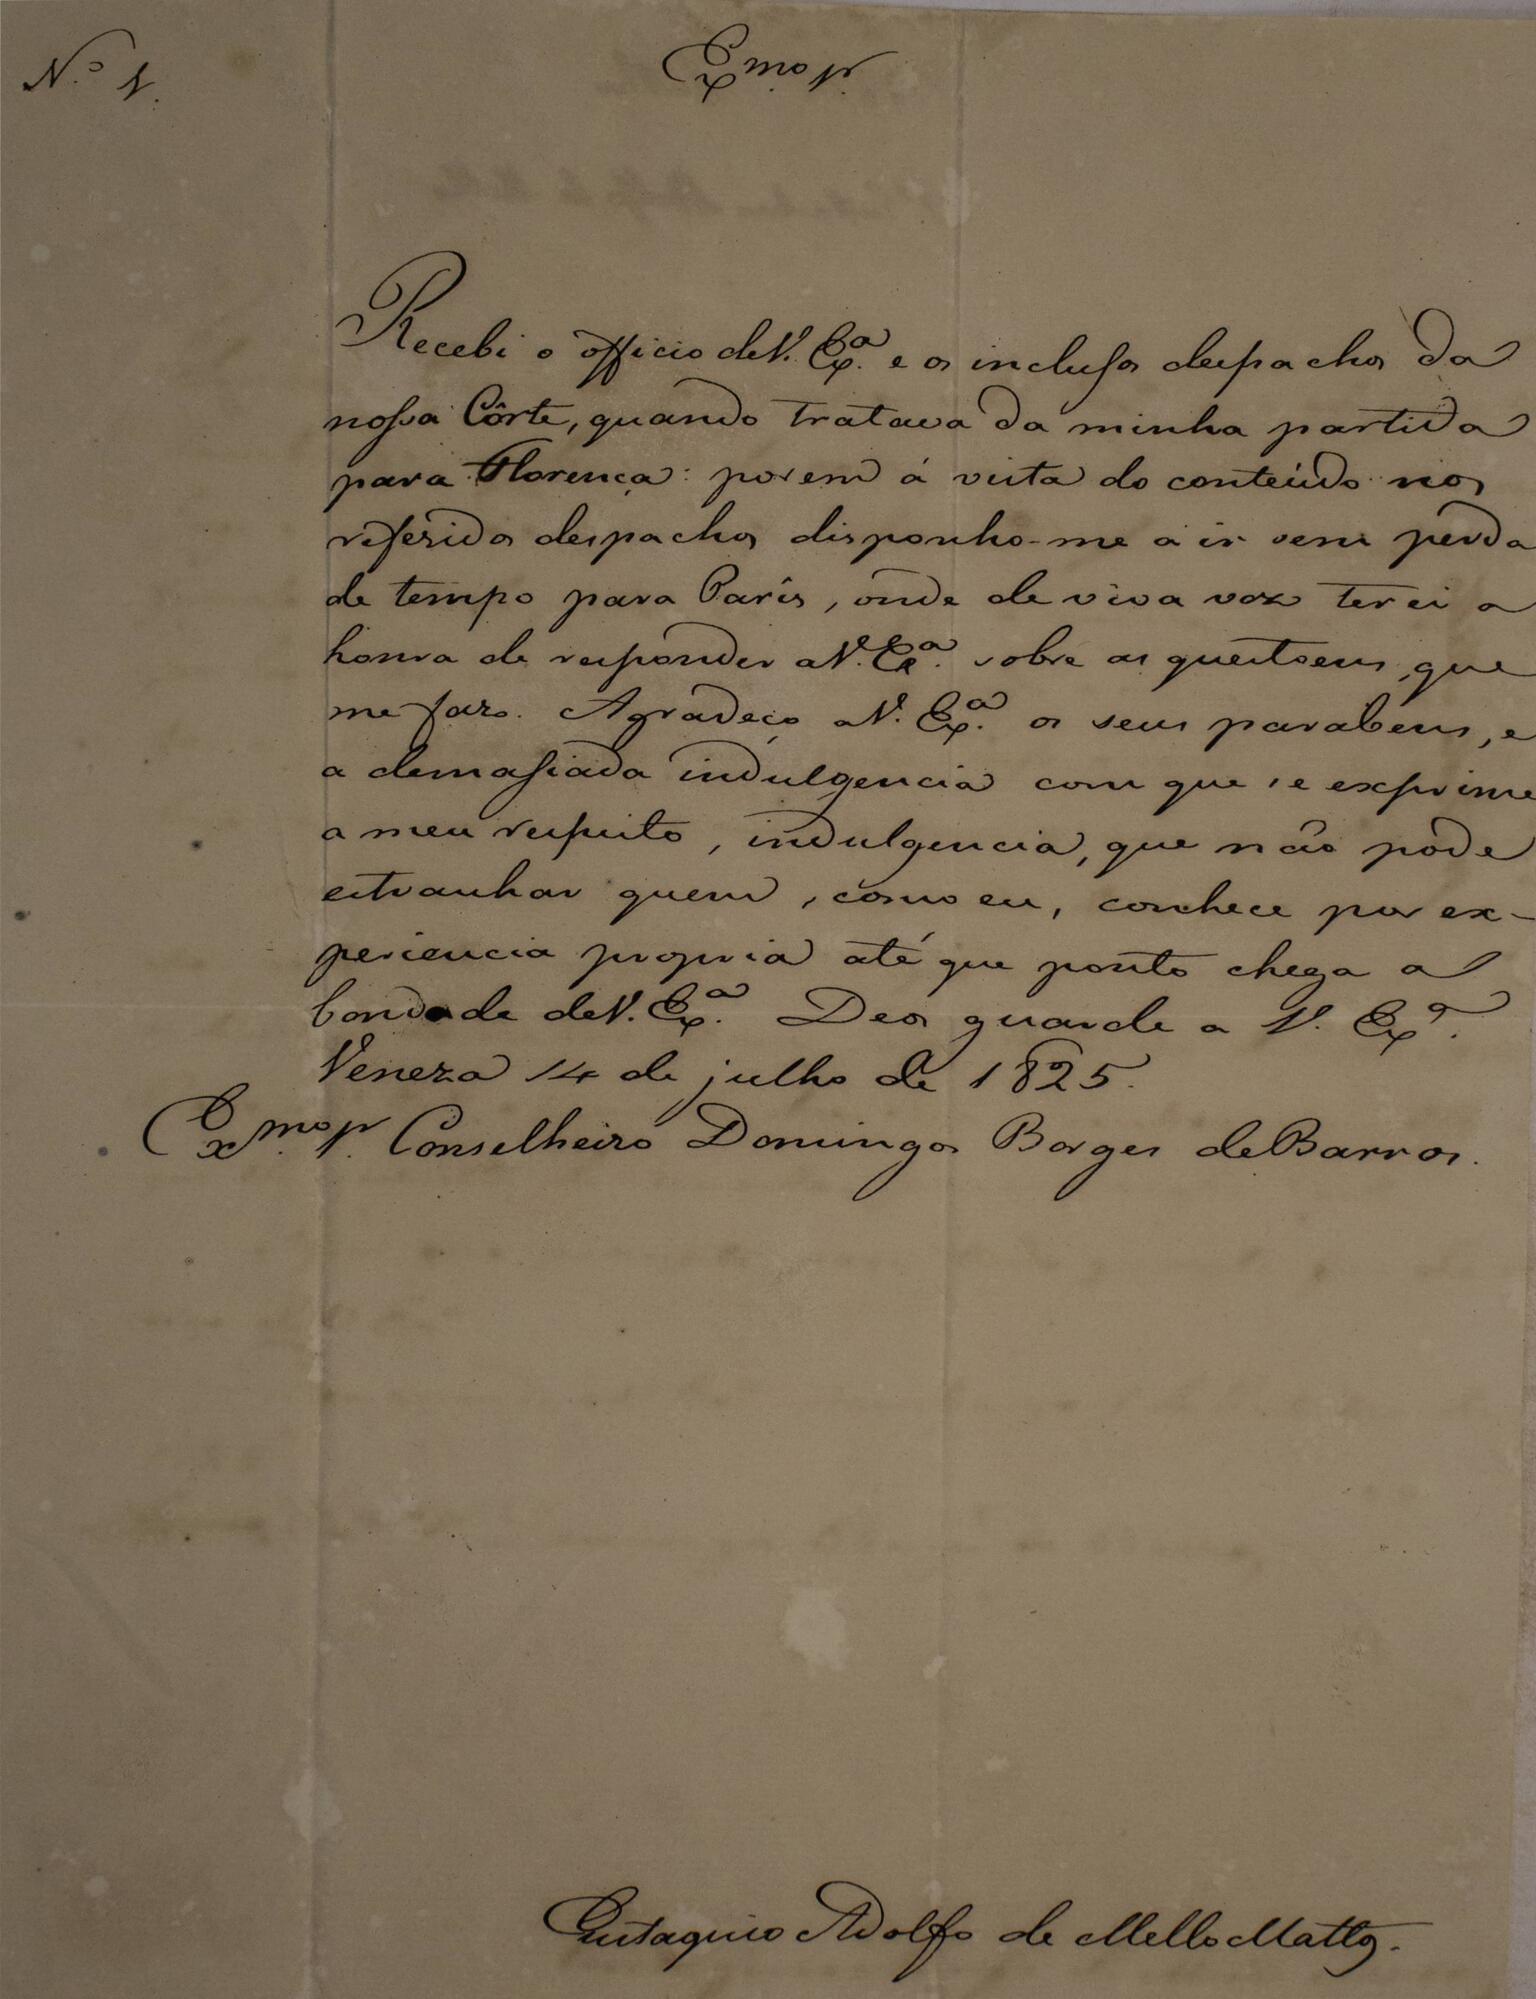 N.º 1.
Ex.mo Sr.
Recebi o officio de V. Ex.ª e os inclusos despachos da
nossa Côrte, quando tratava da minha partida
para Florença: porem á vista do conteúdo nos
referidos despachos disponho-me a ir sem perda
de tempo para París, onde de viva voz terei a
honra de responder a V. Ex.ª sobre as questoens, que
me faz. Agradeço a V. Ex.ª os seus parabens, e
a demasiada indulgencia com que se exprime
a meu respeito, indulgencia, que não póde
estranhar quem, como eu, conhece por ex-
periencia propria até que ponto chega a
bondade de V. Ex.ª. Deos guarde a V. Ex.ª.
Veneza 14 de julho de 1825.
Ex.mo Sr. Conselheiro Domingos Borges de Barros.
Eustaquio Adolfo de Mello Mattos.